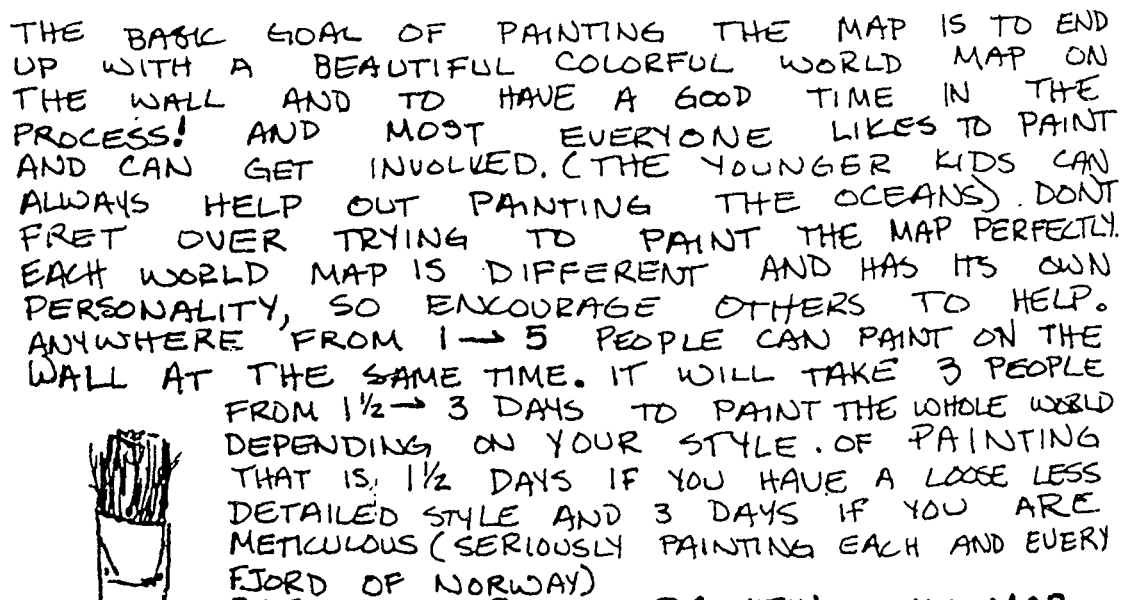 THE BASIC GOAL OF PAINTING THE MAP IS TO END
UP WITH A BEAUTIFUL COLORFUL WORLD MAP ON
THE WALL AND TO HAVE A GOOD TIME IN THE
PROCESS! AND MOST EVERYONE LIKES TO PAINT
AND CAN GET INVOLVED. (THE YOUNGER KIDS CAN
ALWAYS HELP OUT PAINTING THE OCEANS). DONT
FRET OVER TRYING TO PAINT THE MAP PERFECTLY.
EACH WORLD MAP IS DIFFERENT AND HAS ITS OWN
PERSONALITY, SO ENCOURAGE OTHERS TO HELP.
ANYWHERE FROM 1→5 PEOPLE CAN PAINT ON THE
WALL AT THE SAME TIME. IT WILL TAKE 3 PEOPLE
FROM 1½→3 DAYS TO PAINT THE WHOLE WORLD
DEPENDING ON YOUR STYLE. OF PAINTING
THAT IS, 1½ DAYS IF YOU HAVE A LOOSE LESS
DETAILED STYLE AND 3 DAYS IF YOU ARE
METICULOUS (SERIOUSLY PAINTING EACH AND EVERY
FJORD OF NORWAY)